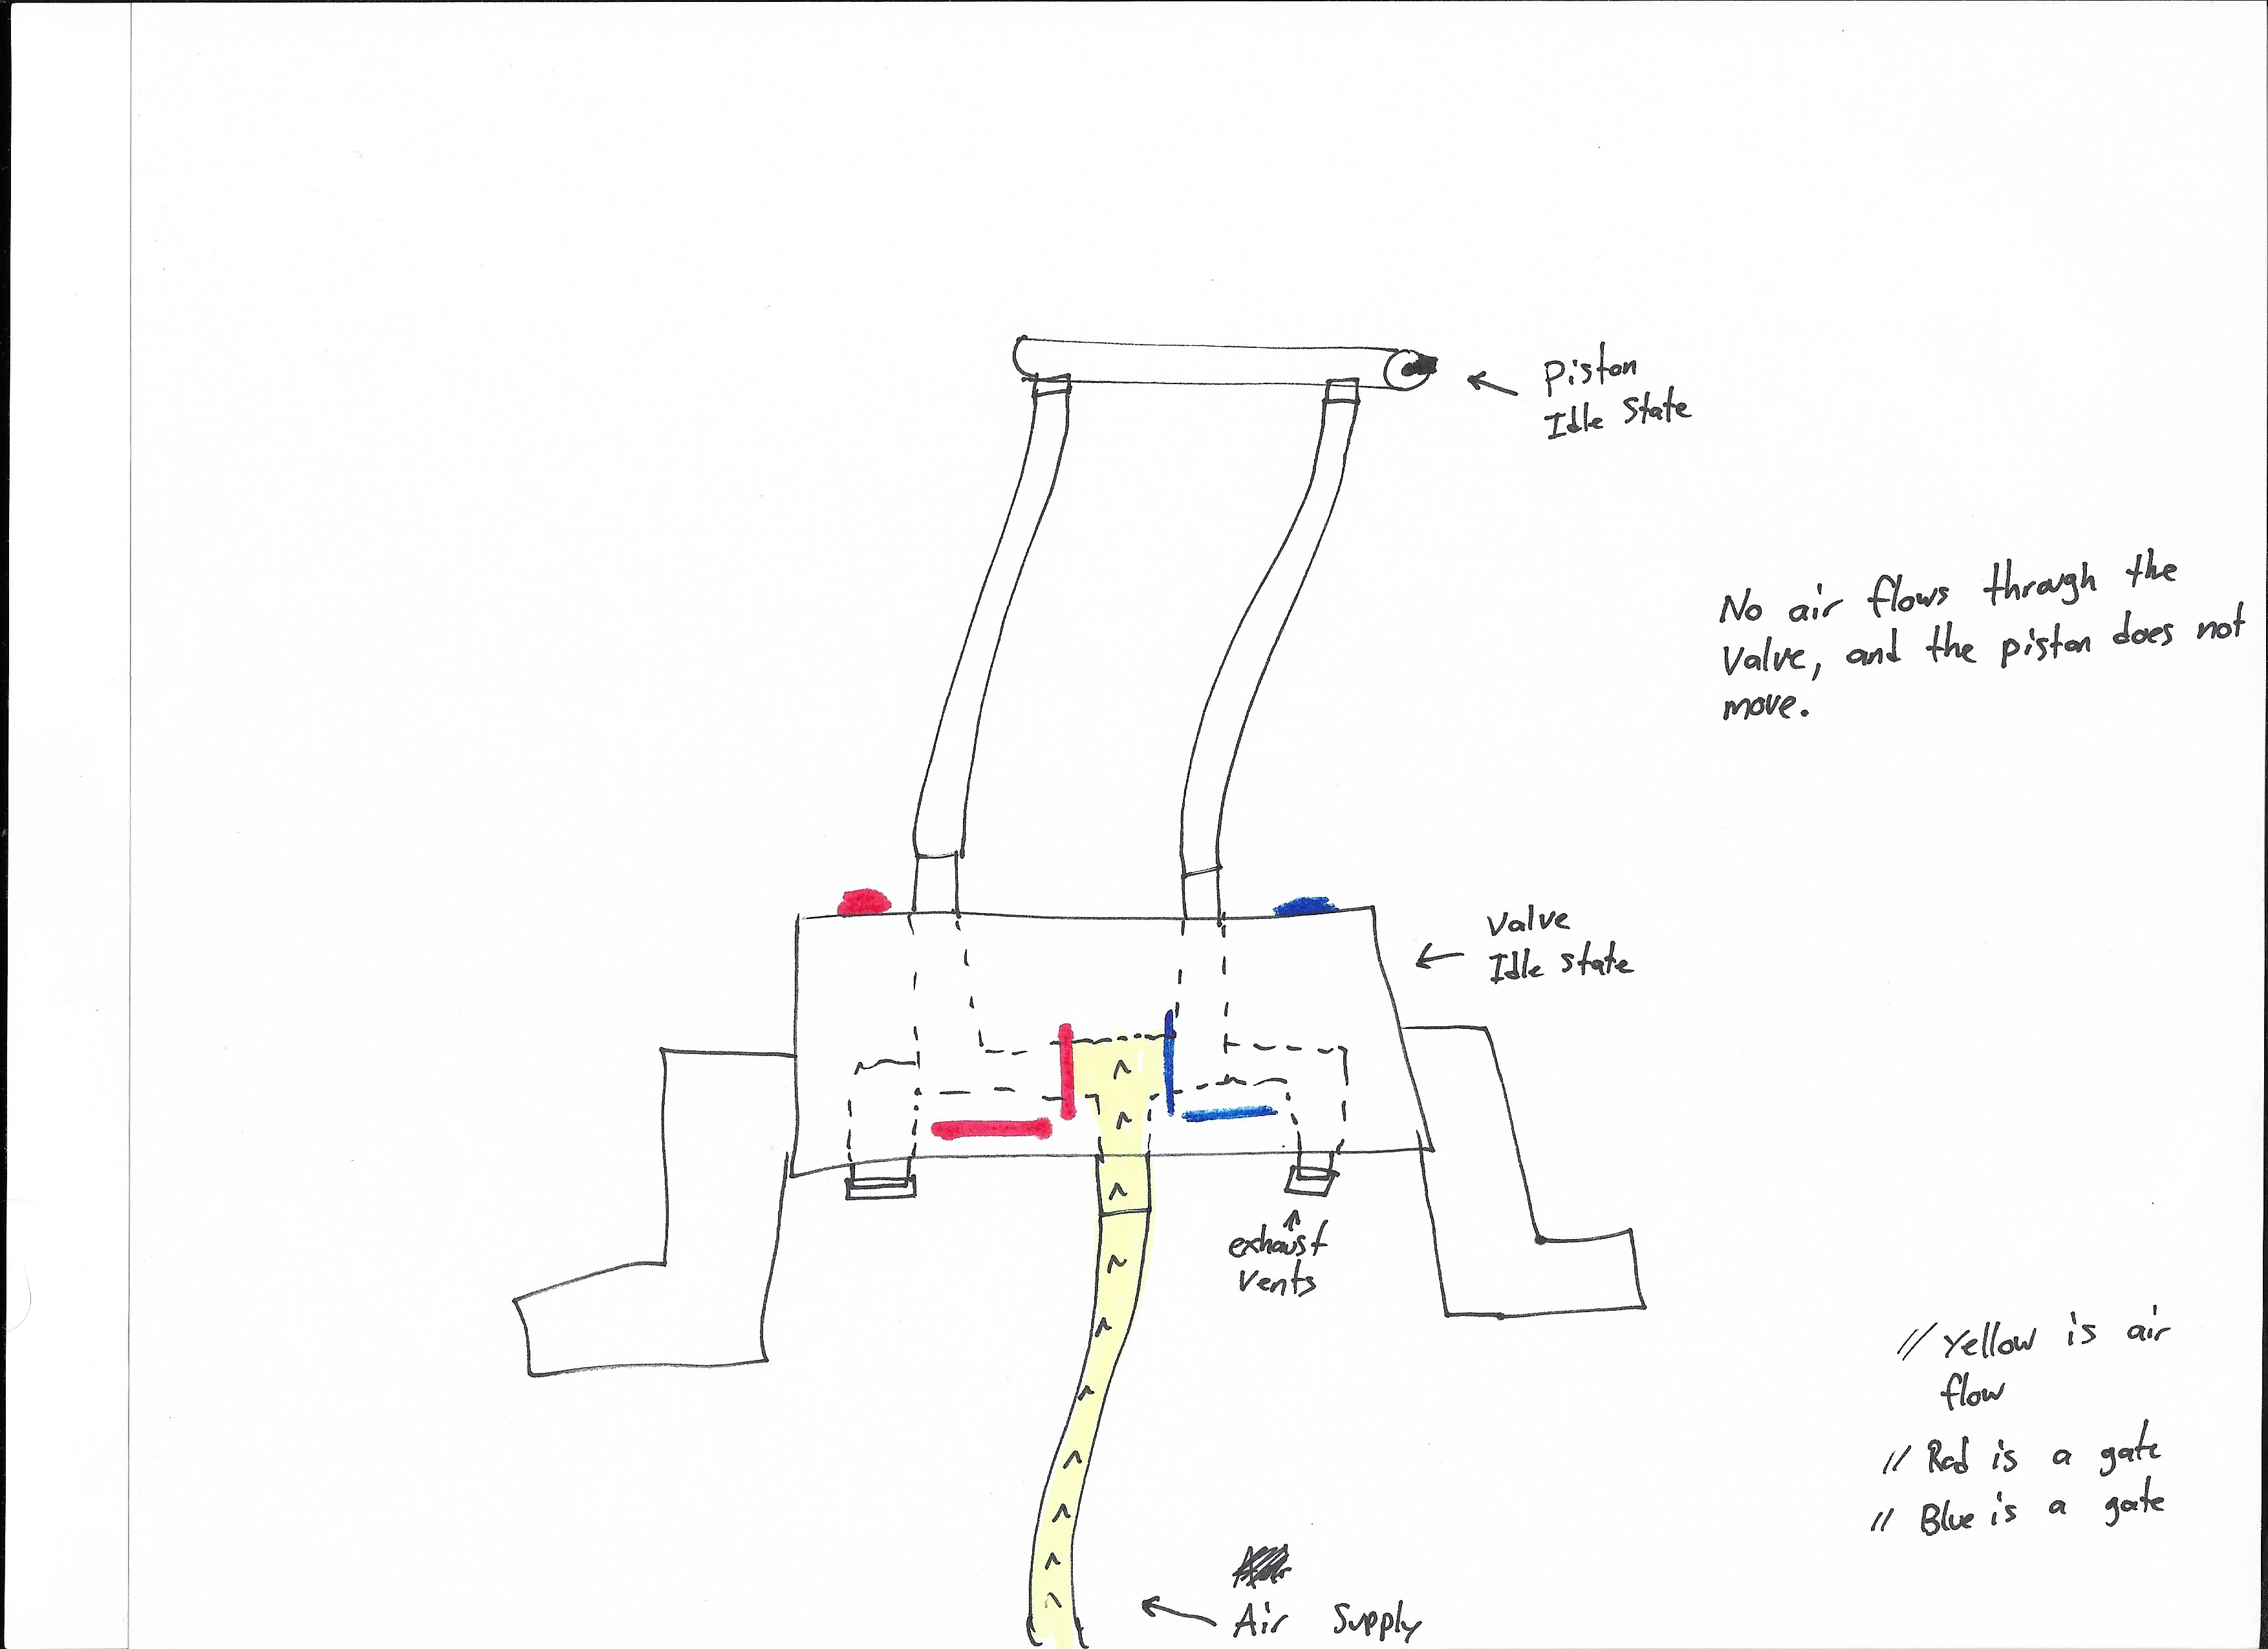 Piston
Idle State
No air flows through the
Valve, and the piston does not
move.
Valve
Idle State
exhaust
Vents
// Yellow is air
flow
// Red is a gate
// Blue is a gate
Air Supply